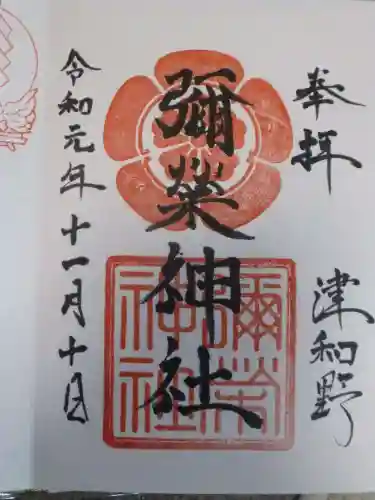 奉拝 津和野
彌榮神社
令和元年十一月十日
彌榮
神社